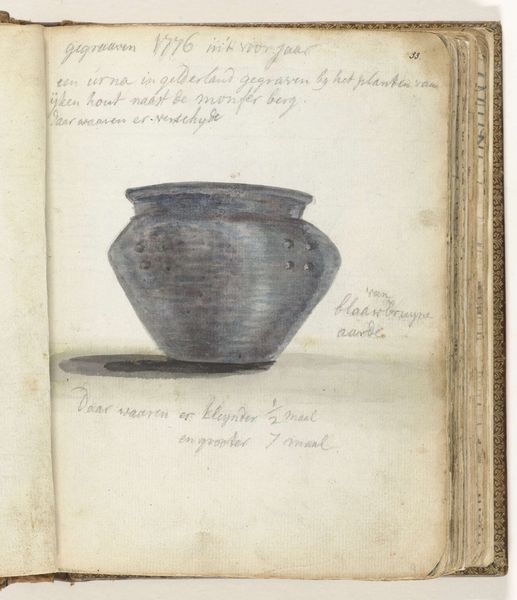 33
gegraaven 1776 in't voor jaar
een urna in gelderland gegraven by het planten van
ijken hout naast de monfer berg.
Daar waaren er verschyde
van
blaauwbruyne
aarde
Daar waaren er kleynder 1/2 maal
en grooter 7 maal